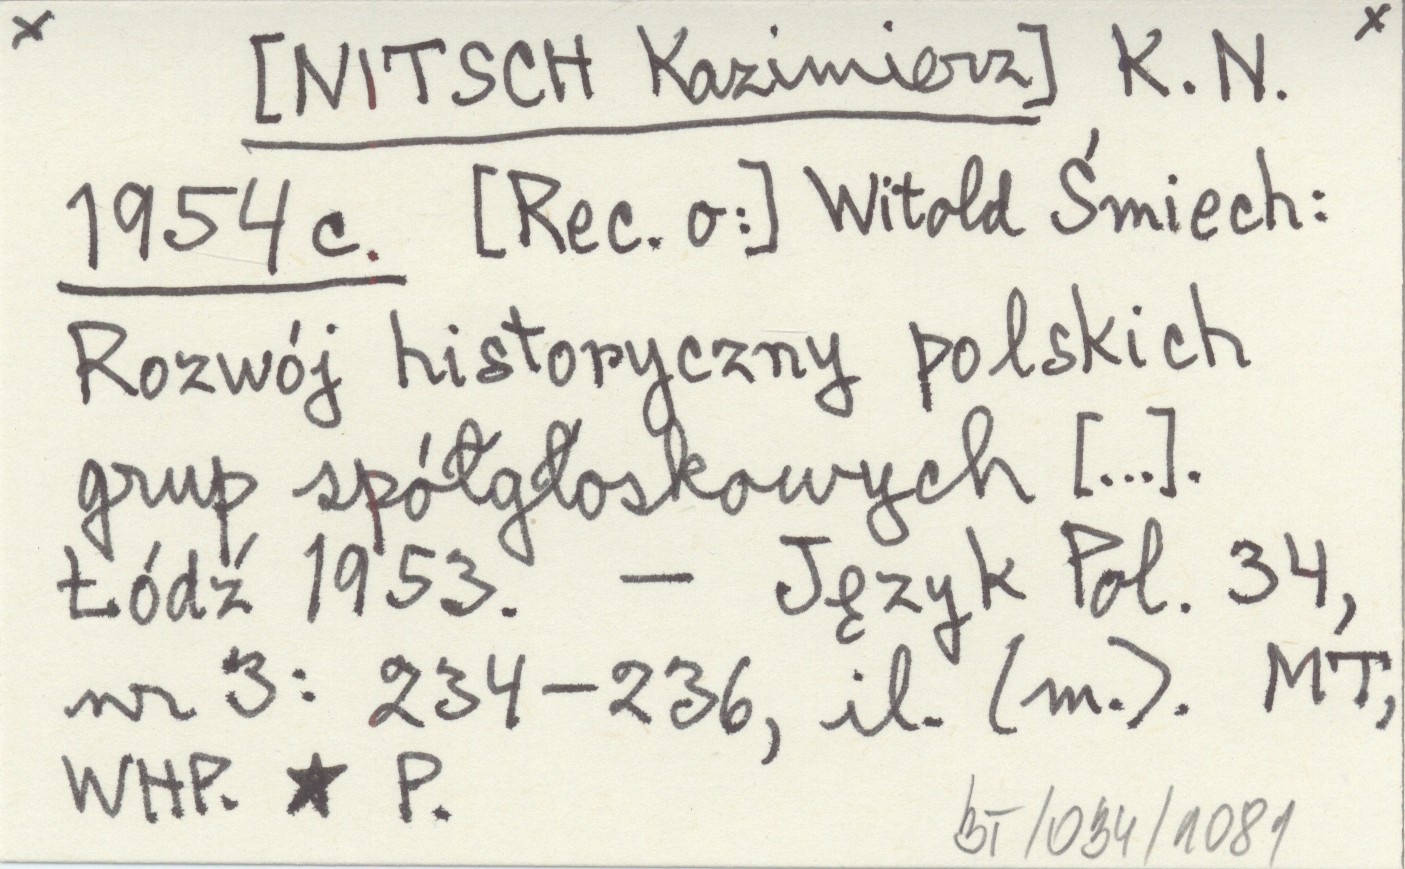 x [NITSCH Kazimierz] K. N. x
1954c. [Rec. o:] Witold Śmiech:
Rozwój historyczny polskich
grup spółgłoskowych [...].
Łódź 1953. — Język Pol. 34,
nr 3: 234-236, il. (m.). MT,
WHP. ★ P.
BT/034/1081